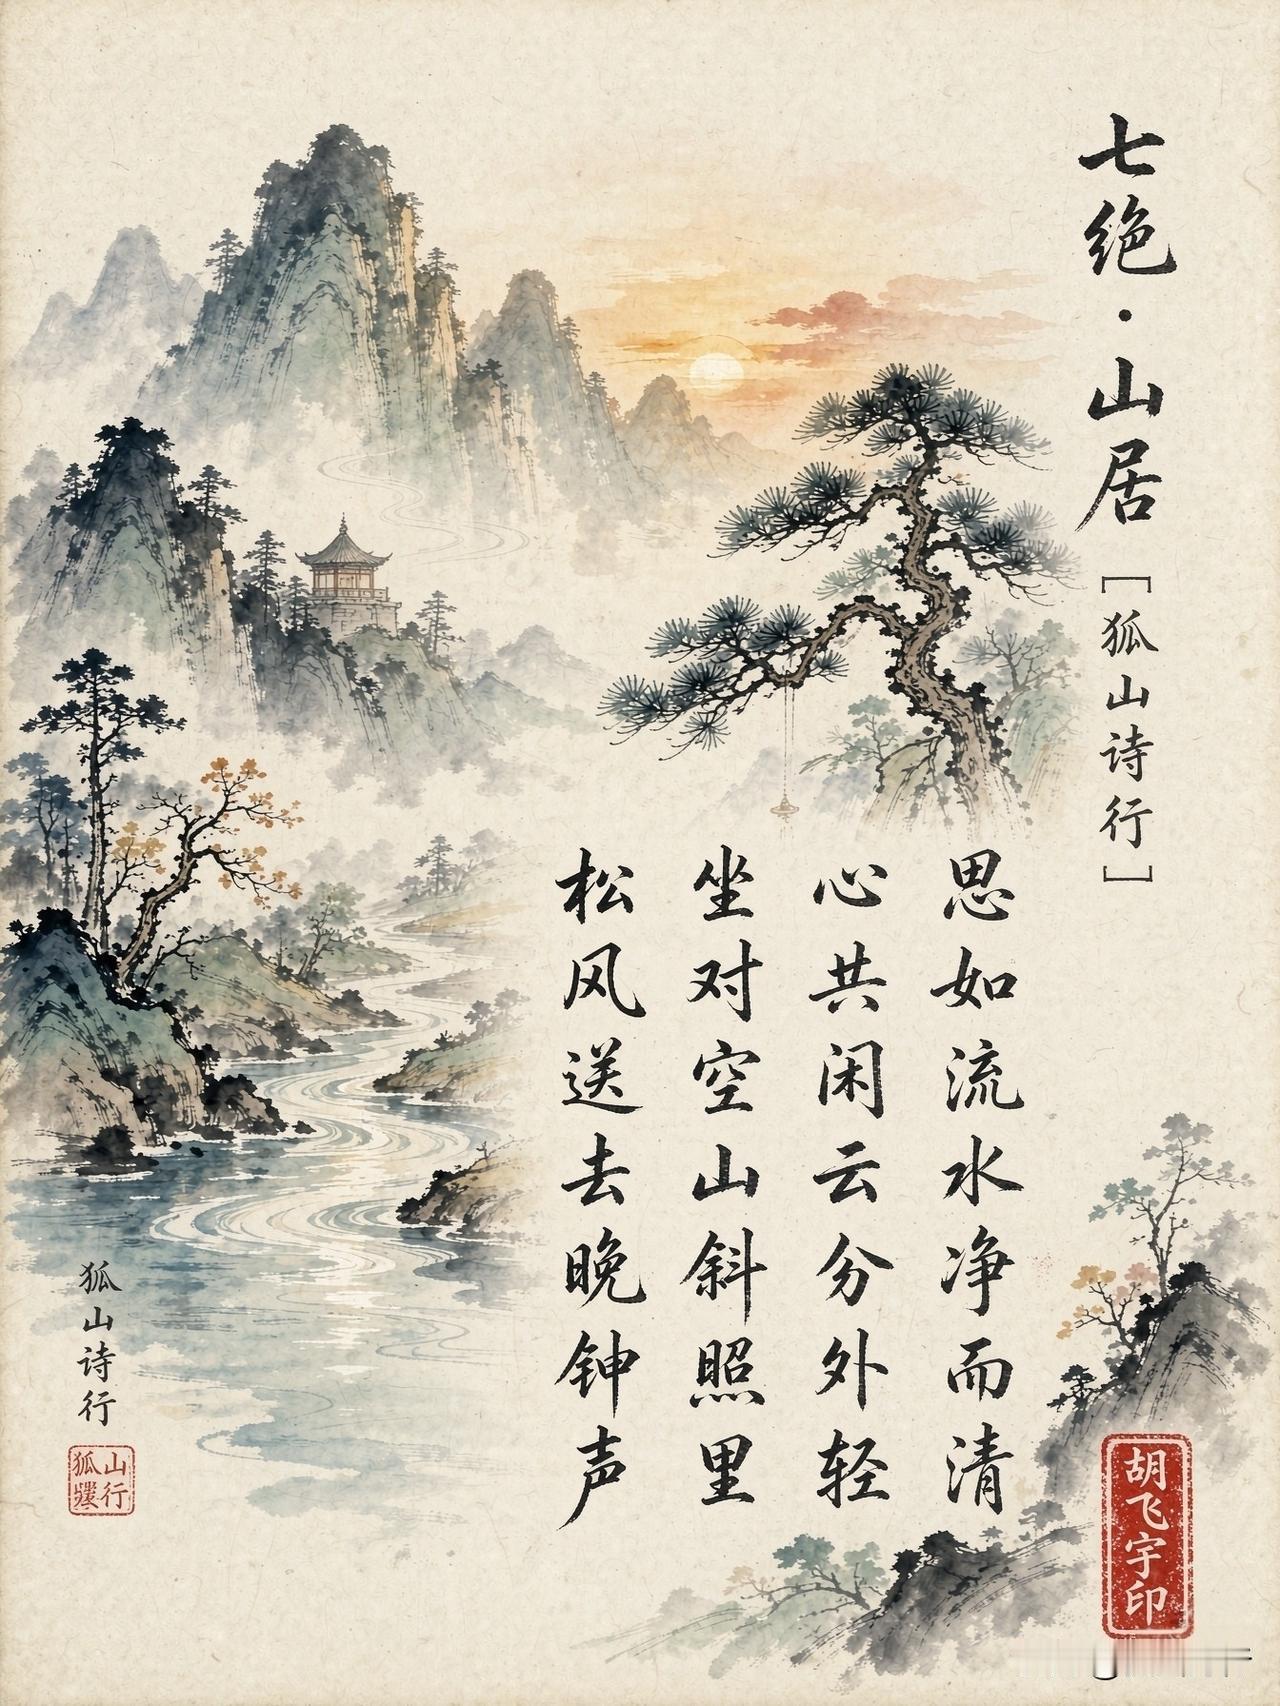 七绝·山居
[狐山诗行]
思如流水净而清
心共闲云分外轻
坐对空山斜照里
松风送去晚钟声
狐山诗行
山行狐
胡飞宇印